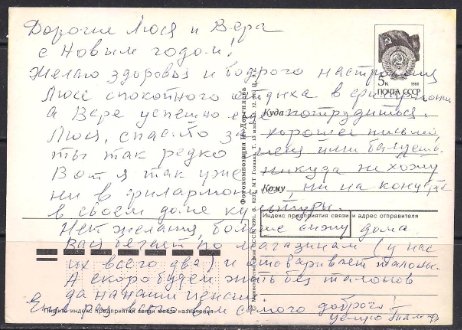 Дорогие Люся и Вера
с Новым годом!
Желаю здоровья и бодрого настроения
Люсе спокойного отдыха в
а Вере успешно потрудиться.
Люся, спасибо за хорошее письмо
ты так редко меня
Вот я так уже никуда не хожу
ни в филармонию, ни на концерты
в своем доме культуры.
Нет желания, больше сижу дома
Вася бегает по магазинам (у нас
их всего два) и отоваривает талоны.
А скоро будем жить без талонов
да на наши пенсии.
Еще раз самого доброго!
целую Тамара
5к
1988
ПОЧТА СССР
Куда
Кому
Индекс предприятия связи и адрес отправителя
Пишите индекс предприятия связи места назначения
Фотокомпозиция И. Дергилева